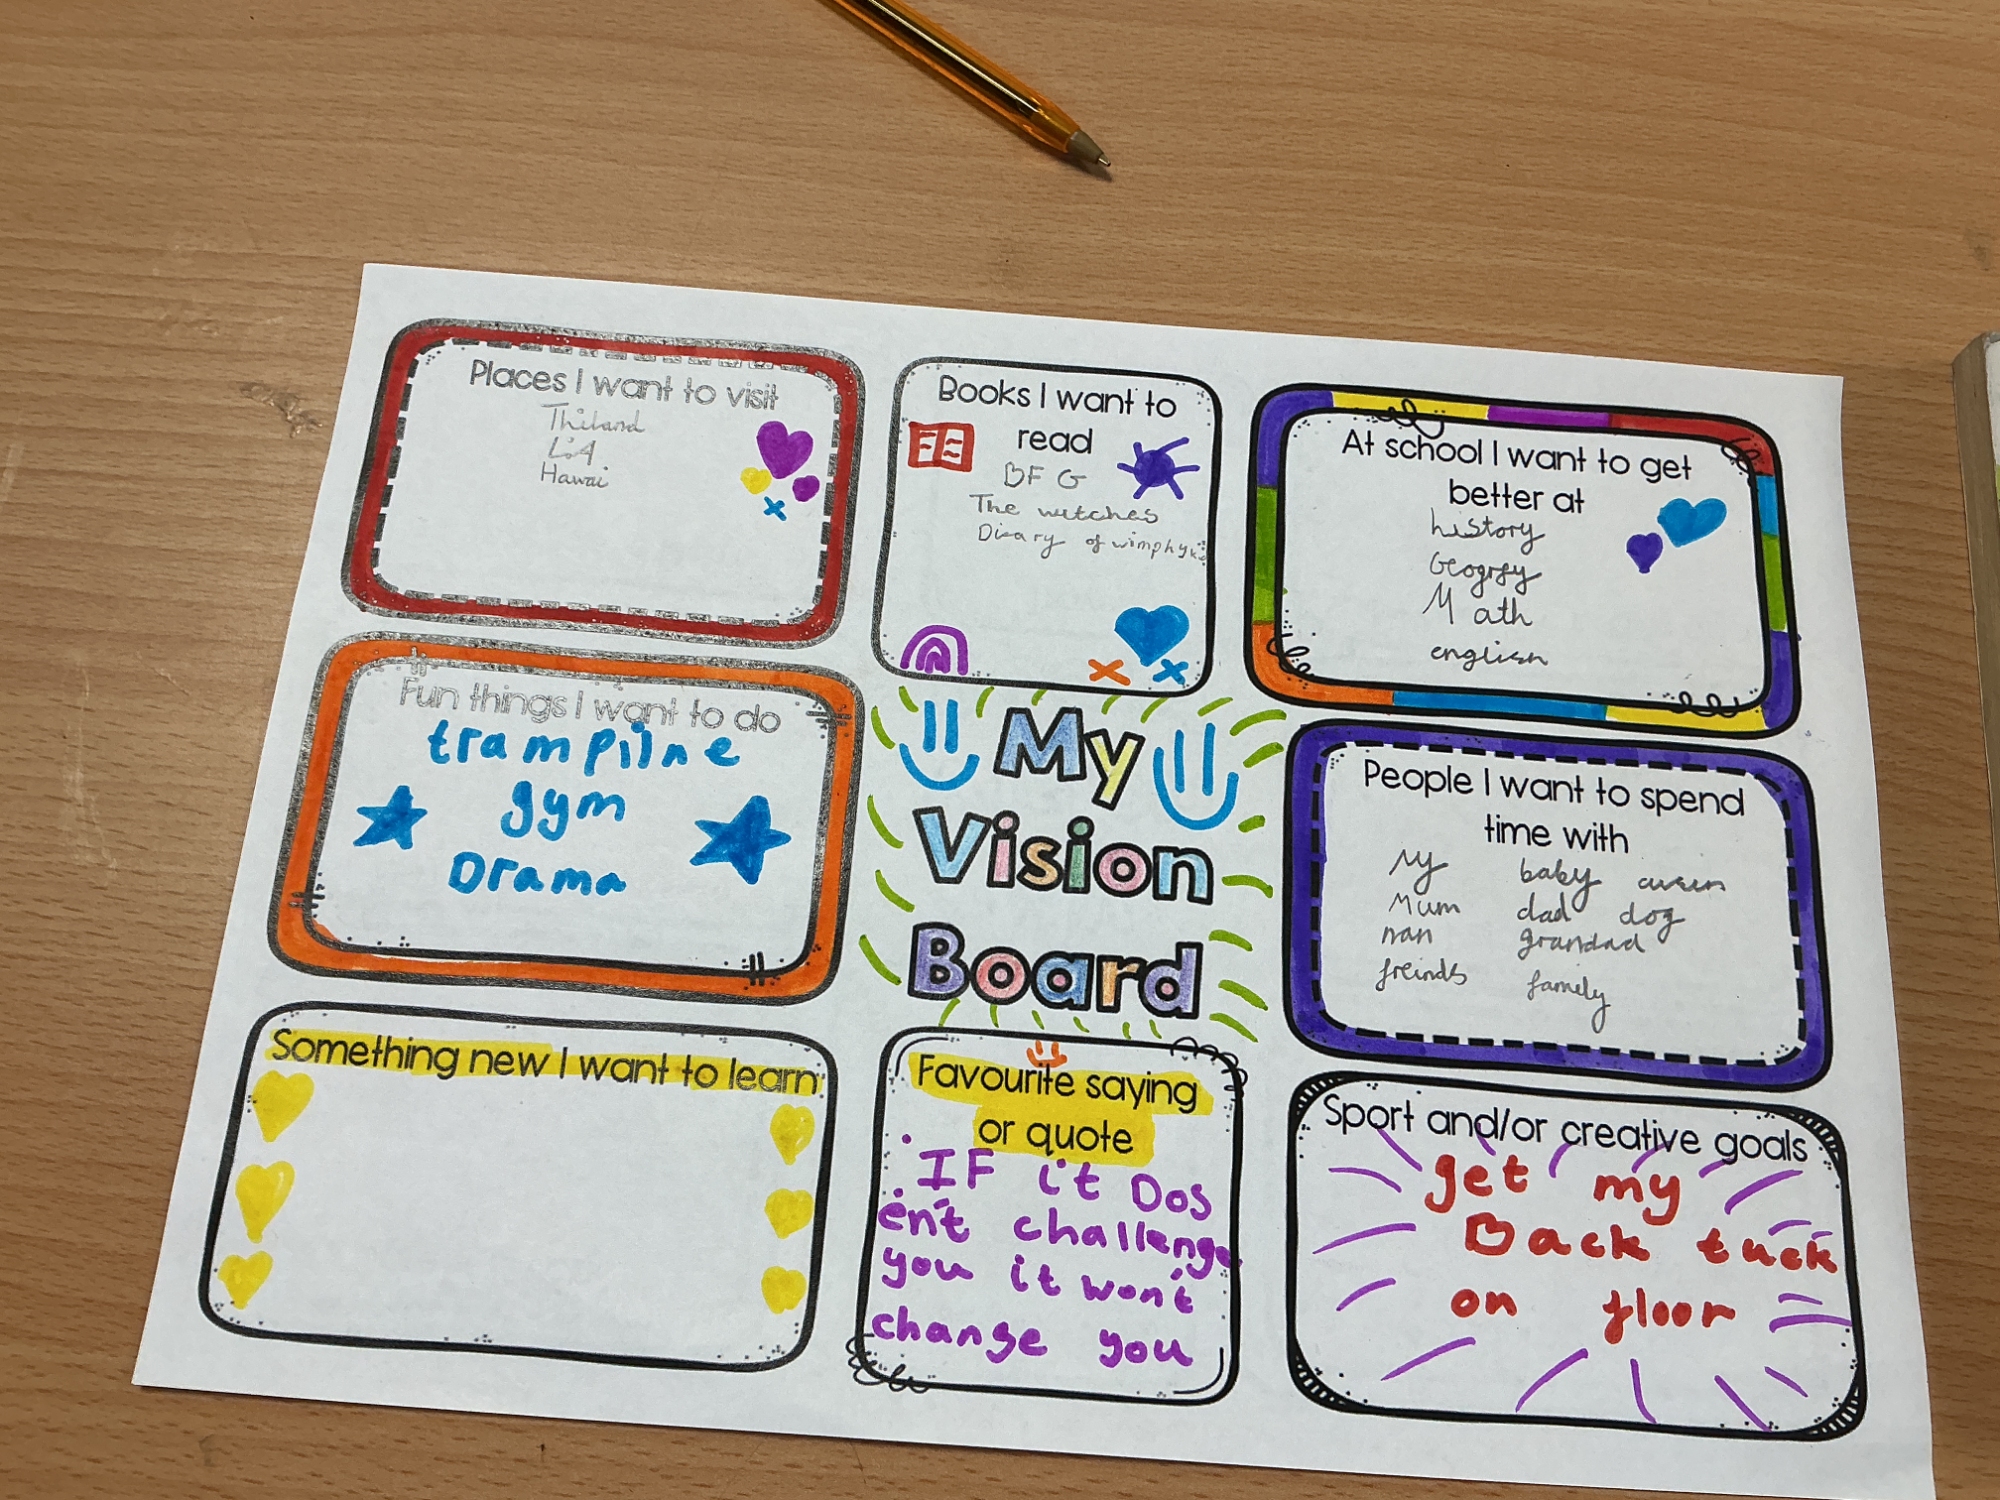 Places I want to visit
Thiland
L.A
Hawai
Books I want to
read
BFG
The witches
Diary of wimphy
At school I want to get
better at
history
Geogrfy
Math
english
Fun things I want to do
trampilne
gym
Drama
My
Vision
Board
People I want to spend
time with
My baby cusen
Mum dad dog
nan grandad
freinds family
Something new I want to learn
Favourite saying
or quote
IF it Dos
en't challenge
you it won't
change you
Sport and/or creative goals
get my
Back tuck
on floor